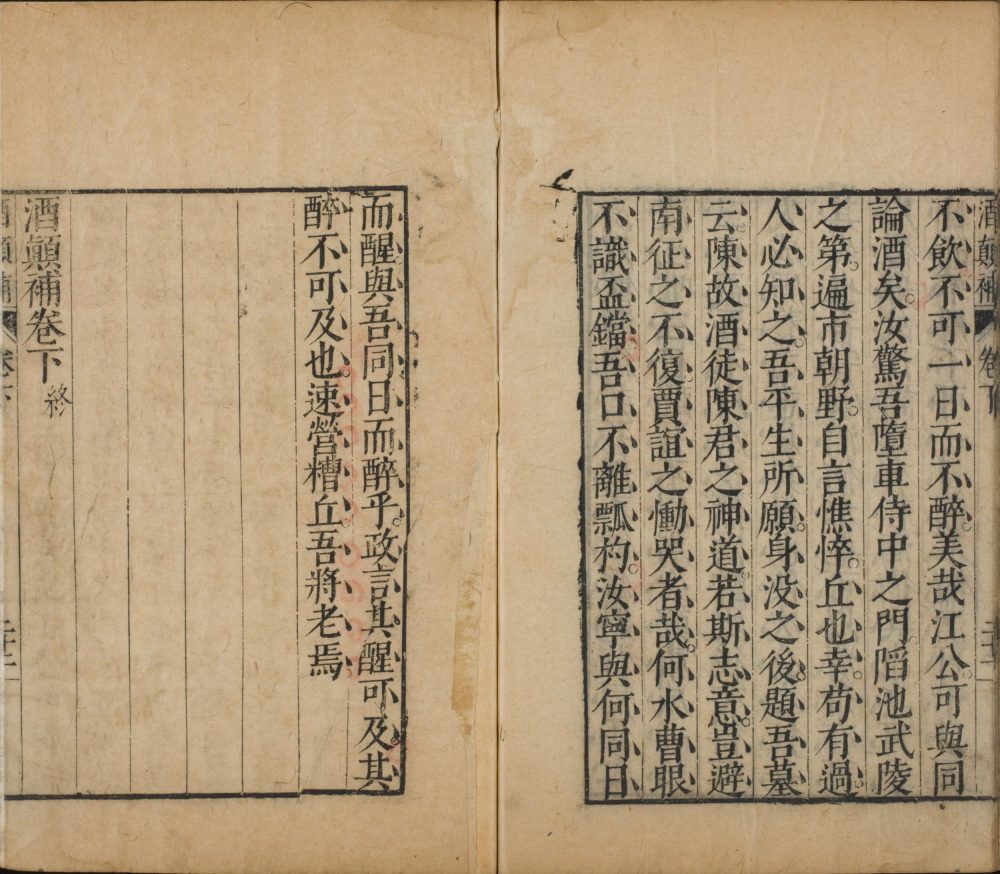 酒顛補 卷下
不飲不可一日而不醉美哉江公可與同
論酒矣汝驚吾墮車侍中之門陷池武陵
之第遍布朝野自言憔悴丘也幸苟有過
人必知之吾平生所願身没之後題吾墓
云陳故酒徒陳君之神道若斯志意豈避
南征之不復賈誼之慟哭者哉何水曹眼
不識盃鐺吾口不離瓢杓汝寧與何同日
而醒與吾同日而醉乎政言其醒可及其
醉不可及也速營糟丘吾將老焉
酒顛補卷下 終
酒顛補 卷下